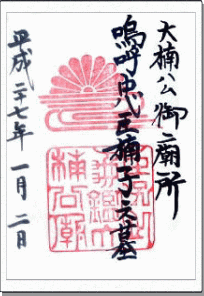 大楠公御廟所
嗚呼忠臣楠子之墓
平成二十七年一月二日